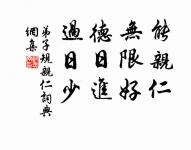 能親仁
無限好
德日進
過日少
弟子規親仁詞典
網集